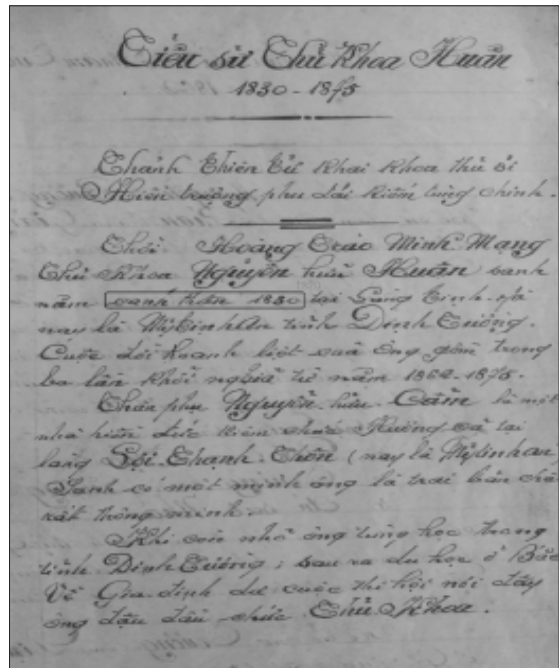 Tiểu sử Thủ Khoa Huân
1830 - 1875
Thánh thiên tử khai khoa thủ sĩ
Hiền trượng phu đắi kiếm tung chinh
Thời Hoàng Trào Minh Mạng
Thủ Khoa Nguyễn hữu Huân sanh
năm canh thân 1830 tại Làng Tịnh Hà
nay là Mỹ tịnh An tỉnh Định Tường.
Cuộc đời hoanh liệt của ông gồm trong
ba lần khởi nghĩa từ năm 1862-1875.
Thân phụ Nguyễn hữu Cẩm là một
nhà hiền đức kiêm chức Hương cả tại
làng Sội Thanh Thôn (nay là Mỹ tịnh an
Sanh có một mình ông là trai bản chất
rất thông minh.
Khi còn nhỏ ông tùng học trong
tỉnh Định Tường; sau ra du học ở Bắc
Về Gia định dự cuộc thi hội nơi đây
ông đậu đầu chức Thủ Khoa.